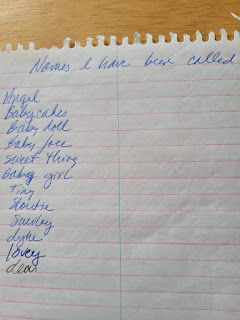 Names I have been called
Angel
Babycakes
Baby doll
Baby face
Sweet thing
Baby girl
Tiny
Smiley
dyke
lovey
dear